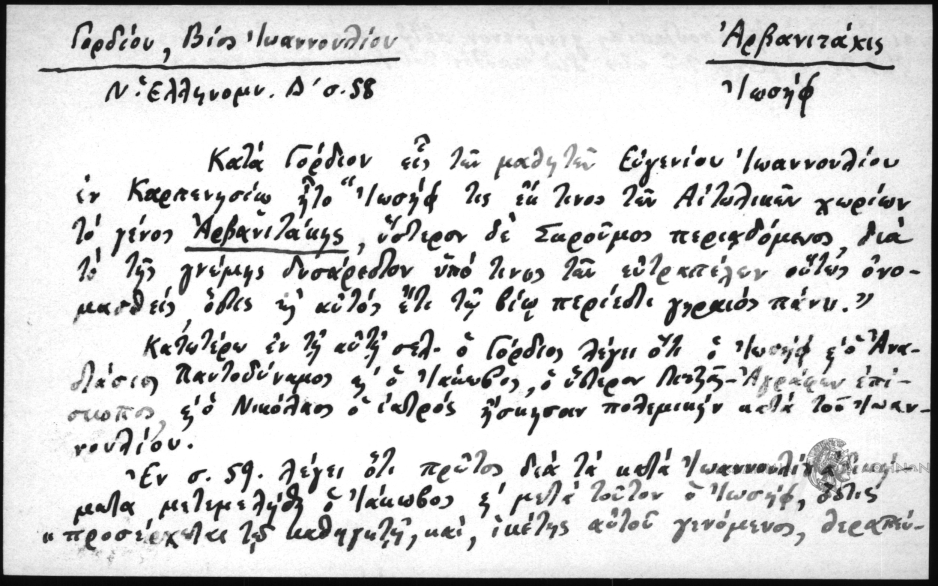 Γορδίου, Βίος Ἰωαννουλίου
Ἀρβανιτάκις
Ν. Ἑλληνομν. Δ' σ. 58
Ἰωσήφ
Κατά Γόρδιον εἷς τῶν μαθητῶν Εὐγενίου Ἰωαννουλίου
ἐν Καρπενησίῳ ἦτο "Ἰωσήφ τις ἔκ τινος τῶν Αἰτωλικῶν χωρίων
τό γένος Ἀρβανιτάκης, ὕστερον δέ Σκρούμος περιαδόμενος, διά
τό τῆς γνώμης δυσάρεστον ὑπό τινος τῶν εὐτραπέλων οὕτως ὀνο-
μασθείς, ὅστις ϗ αὐτός ἔτι τῷ βίῳ περίεστι γηραιός πάνυ."
Κατωτέρω ἐν τῇ αὐτῇ σελ. ὁ Γόρδιος λέγει ὅτι ὁ Ἰωσήφ ϗ ὁ Ἀνα-
στάσιος Παντοδύναμος ϗ ὁ Ἰάκωβος, ὁ ὕστερον Λιτζᾶς-Ἀγράφων ἐπί-
σκοπος, ϗ ὁ Νικόλαος ὁ ἰατρός ἤσκησαν πολεμικήν κατά τοῦ Ἰωαν-
νουλίου.
Ἐν σ. 59. λέγει ὅτι πρῶτος διά τά κατά Ἰωαννουλίου
ματα μετεμελήθη ὁ Ἰάκωβος ϗ μετά τοῦτον ὁ Ἰωσήφ, ὅστις
"προσέρχεται τῷ καθηγητῇ, καί, ἱκέτης αὐτοῦ γενόμενος, θεραπεύ-